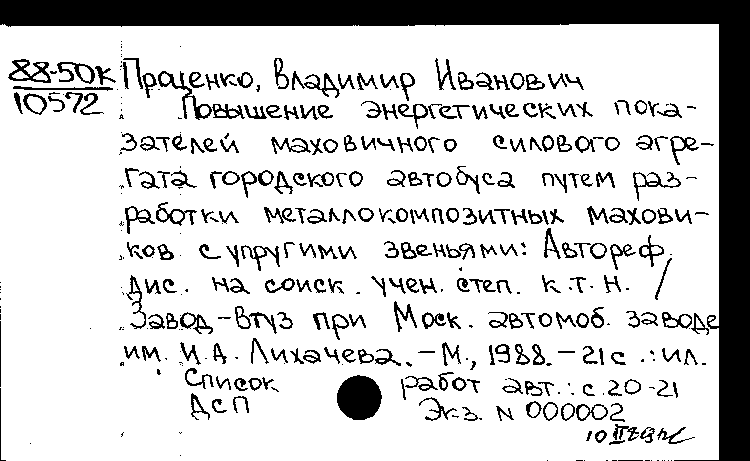 88-50к Проценко, Владимир Иванович
10572 Повышение энергетических пока-
зателей маховичного силового агре-
гата городского автобуса путем раз-
работки металлокомпозитных махови-
ков с упругими звеньями: Автореф.
дис. на соиск. учен. степ. к.т.н. /
Завод-втуз при Моск. автомоб. заводе
им. И.А. Лихачева. – М., 1988. – 21 с.: ил.
Список работ авт.: с. 20-21
ДСП Экз. N 000002
10